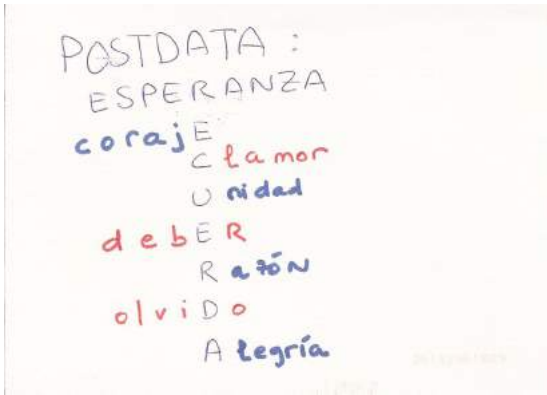 POSTDATA :
ESPERANZA
corajE
Clamor
Unidad
debER
Razón
olviDo
Alegría